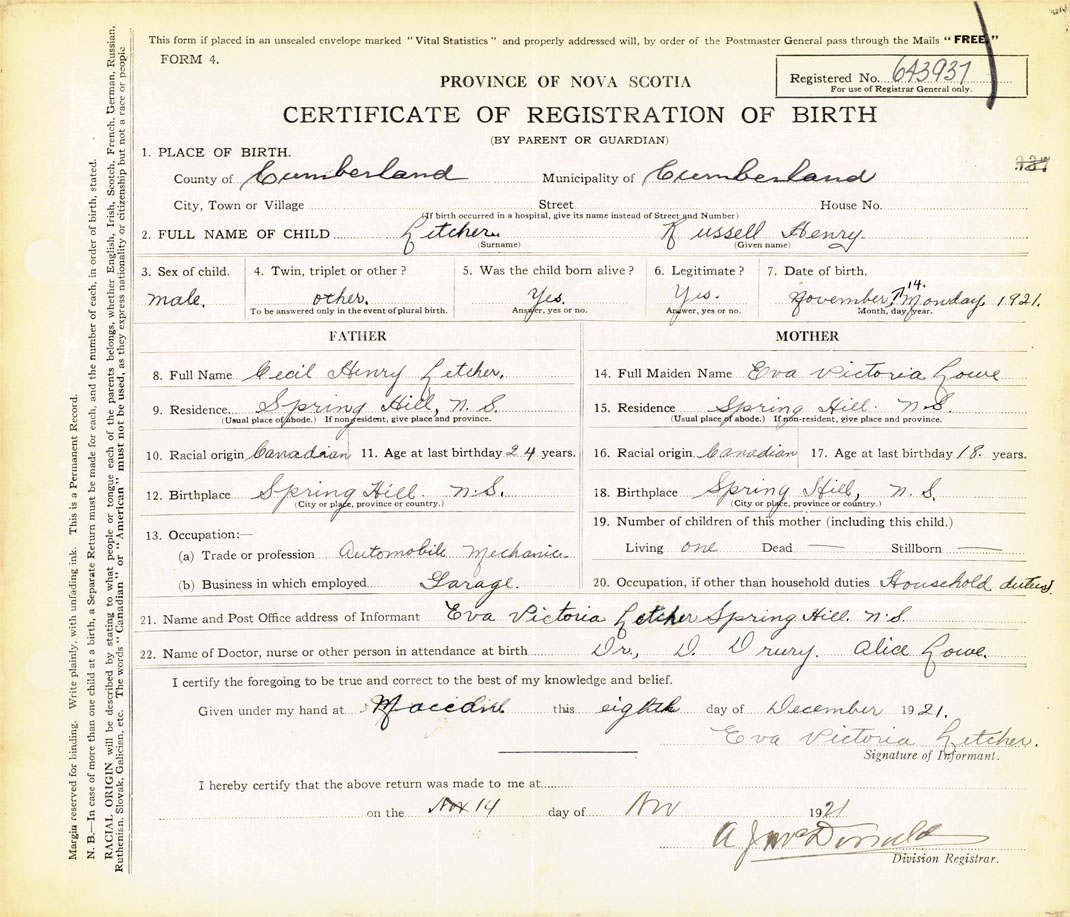 This form if placed in an unsealed envelope marked "Vital Statistics" and properly addressed will, by order of the Postmaster General pass through the Mails "FREE."
FORM 4.
PROVINCE OF NOVA SCOTIA
Registered No. 643937
For use of Registrar General only.
CERTIFICATE OF REGISTRATION OF BIRTH
(BY PARENT OR GUARDIAN)
1. PLACE OF BIRTH.
County of Cumberland Municipality of Cumberland
City, Town or Village Street House No.
(If birth occurred in a hospital, give its name instead of Street and Number)
2. FULL NAME OF CHILD Letcher Russell Henry
(Surname) (Given name)
3. Sex of child. 4. Twin, triplet or other? 5. Was the child born alive? 6. Legitimate? 7. Date of birth.
male. other. Yes. Yes. November, 14. Monday, 1921.
To be answered only in the event of plural birth. Answer, yes or no. Answer, yes or no. Month, day, year.
FATHER MOTHER
8. Full Name Cecil Henry Letcher. 14. Full Maiden Name Eva Victoria Lowe
9. Residence. Spring Hill, N. S. 15. Residence Spring Hill. N.S.
(Usual place of abode.) If non-resident, give place and province. (Usual place of abode.) If non-resident, give place and province.
10. Racial origin Canadian 11. Age at last birthday 24 years. 16. Racial origin Canadian 17. Age at last birthday 18. years.
12. Birthplace Spring Hill. N.S. 18. Birthplace Spring Hill, N. S.
(City or place, province or country.) (City or place, province or country.)
13. Occupation:— 19. Number of children of this mother (including this child.)
(a) Trade or profession Automobile Mechanic Living one Dead — Stillborn —
(b) Business in which employed Garage. 20. Occupation, if other than household duties Household duties.
21. Name and Post Office address of Informant Eva Victoria Letcher Spring Hill. N.S.
22. Name of Doctor, nurse or other person in attendance at birth Dr, D. Drury. Alice Lowe.
I certify the foregoing to be true and correct to the best of my knowledge and belief.
Given under my hand at Maccan this eighth day of December 1921.
Eva Victoria Letcher.
Signature of Informant.
I hereby certify that the above return was made to me at
on the Nov 14 day of Nov 1921
A J McDonald
Division Registrar.
Margin reserved for binding. Write plainly, with unfading ink. This is a Permanent Record.
N. B.—In case of more than one child at a birth, a Separate Return must be made for each, and the number of each, in order of birth, stated.
RACIAL ORIGIN will be described by stating to what people or tongue each of the parents belongs, whether English, Irish, Scotch, French, German, Russian,
Ruthenian, Slovak, Galician, etc. The words "Canadian" or "American" must not be used, as they express nationality or citizenship but not a race or people